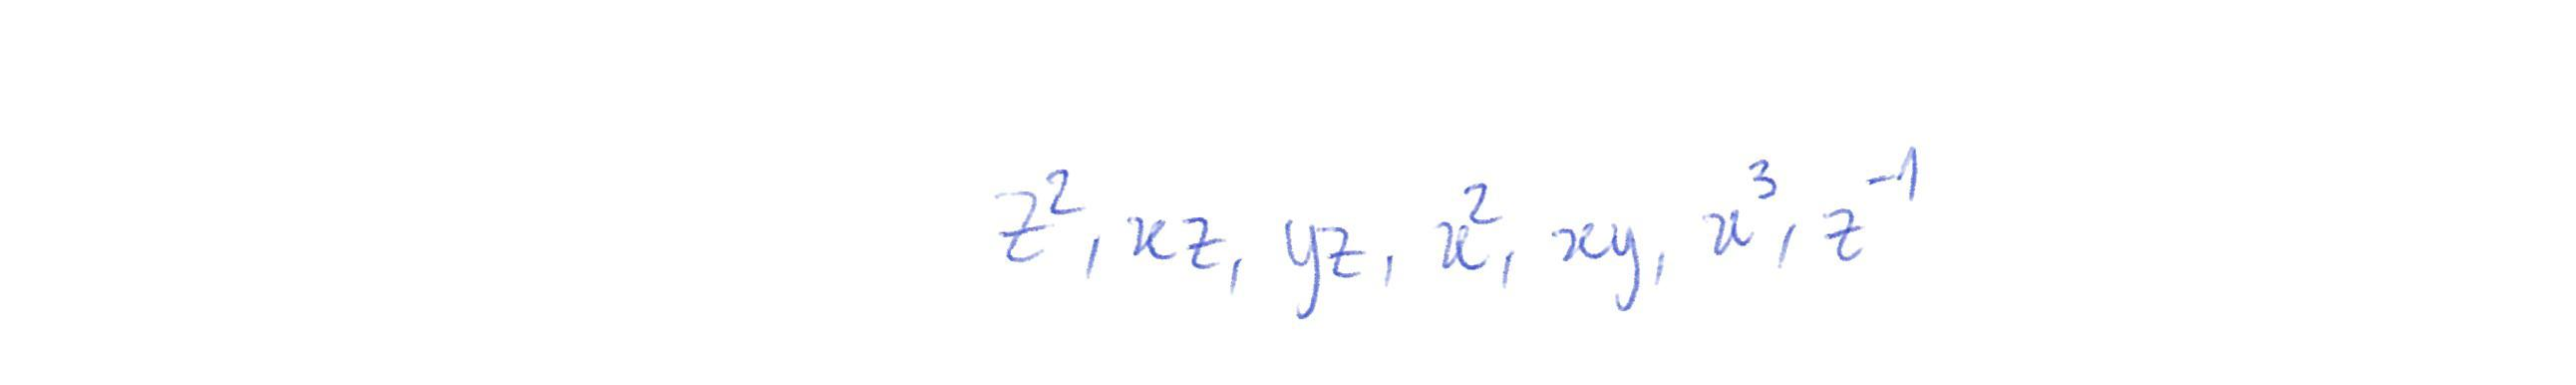 z², xz, yz, x², xy, x³, z⁻¹